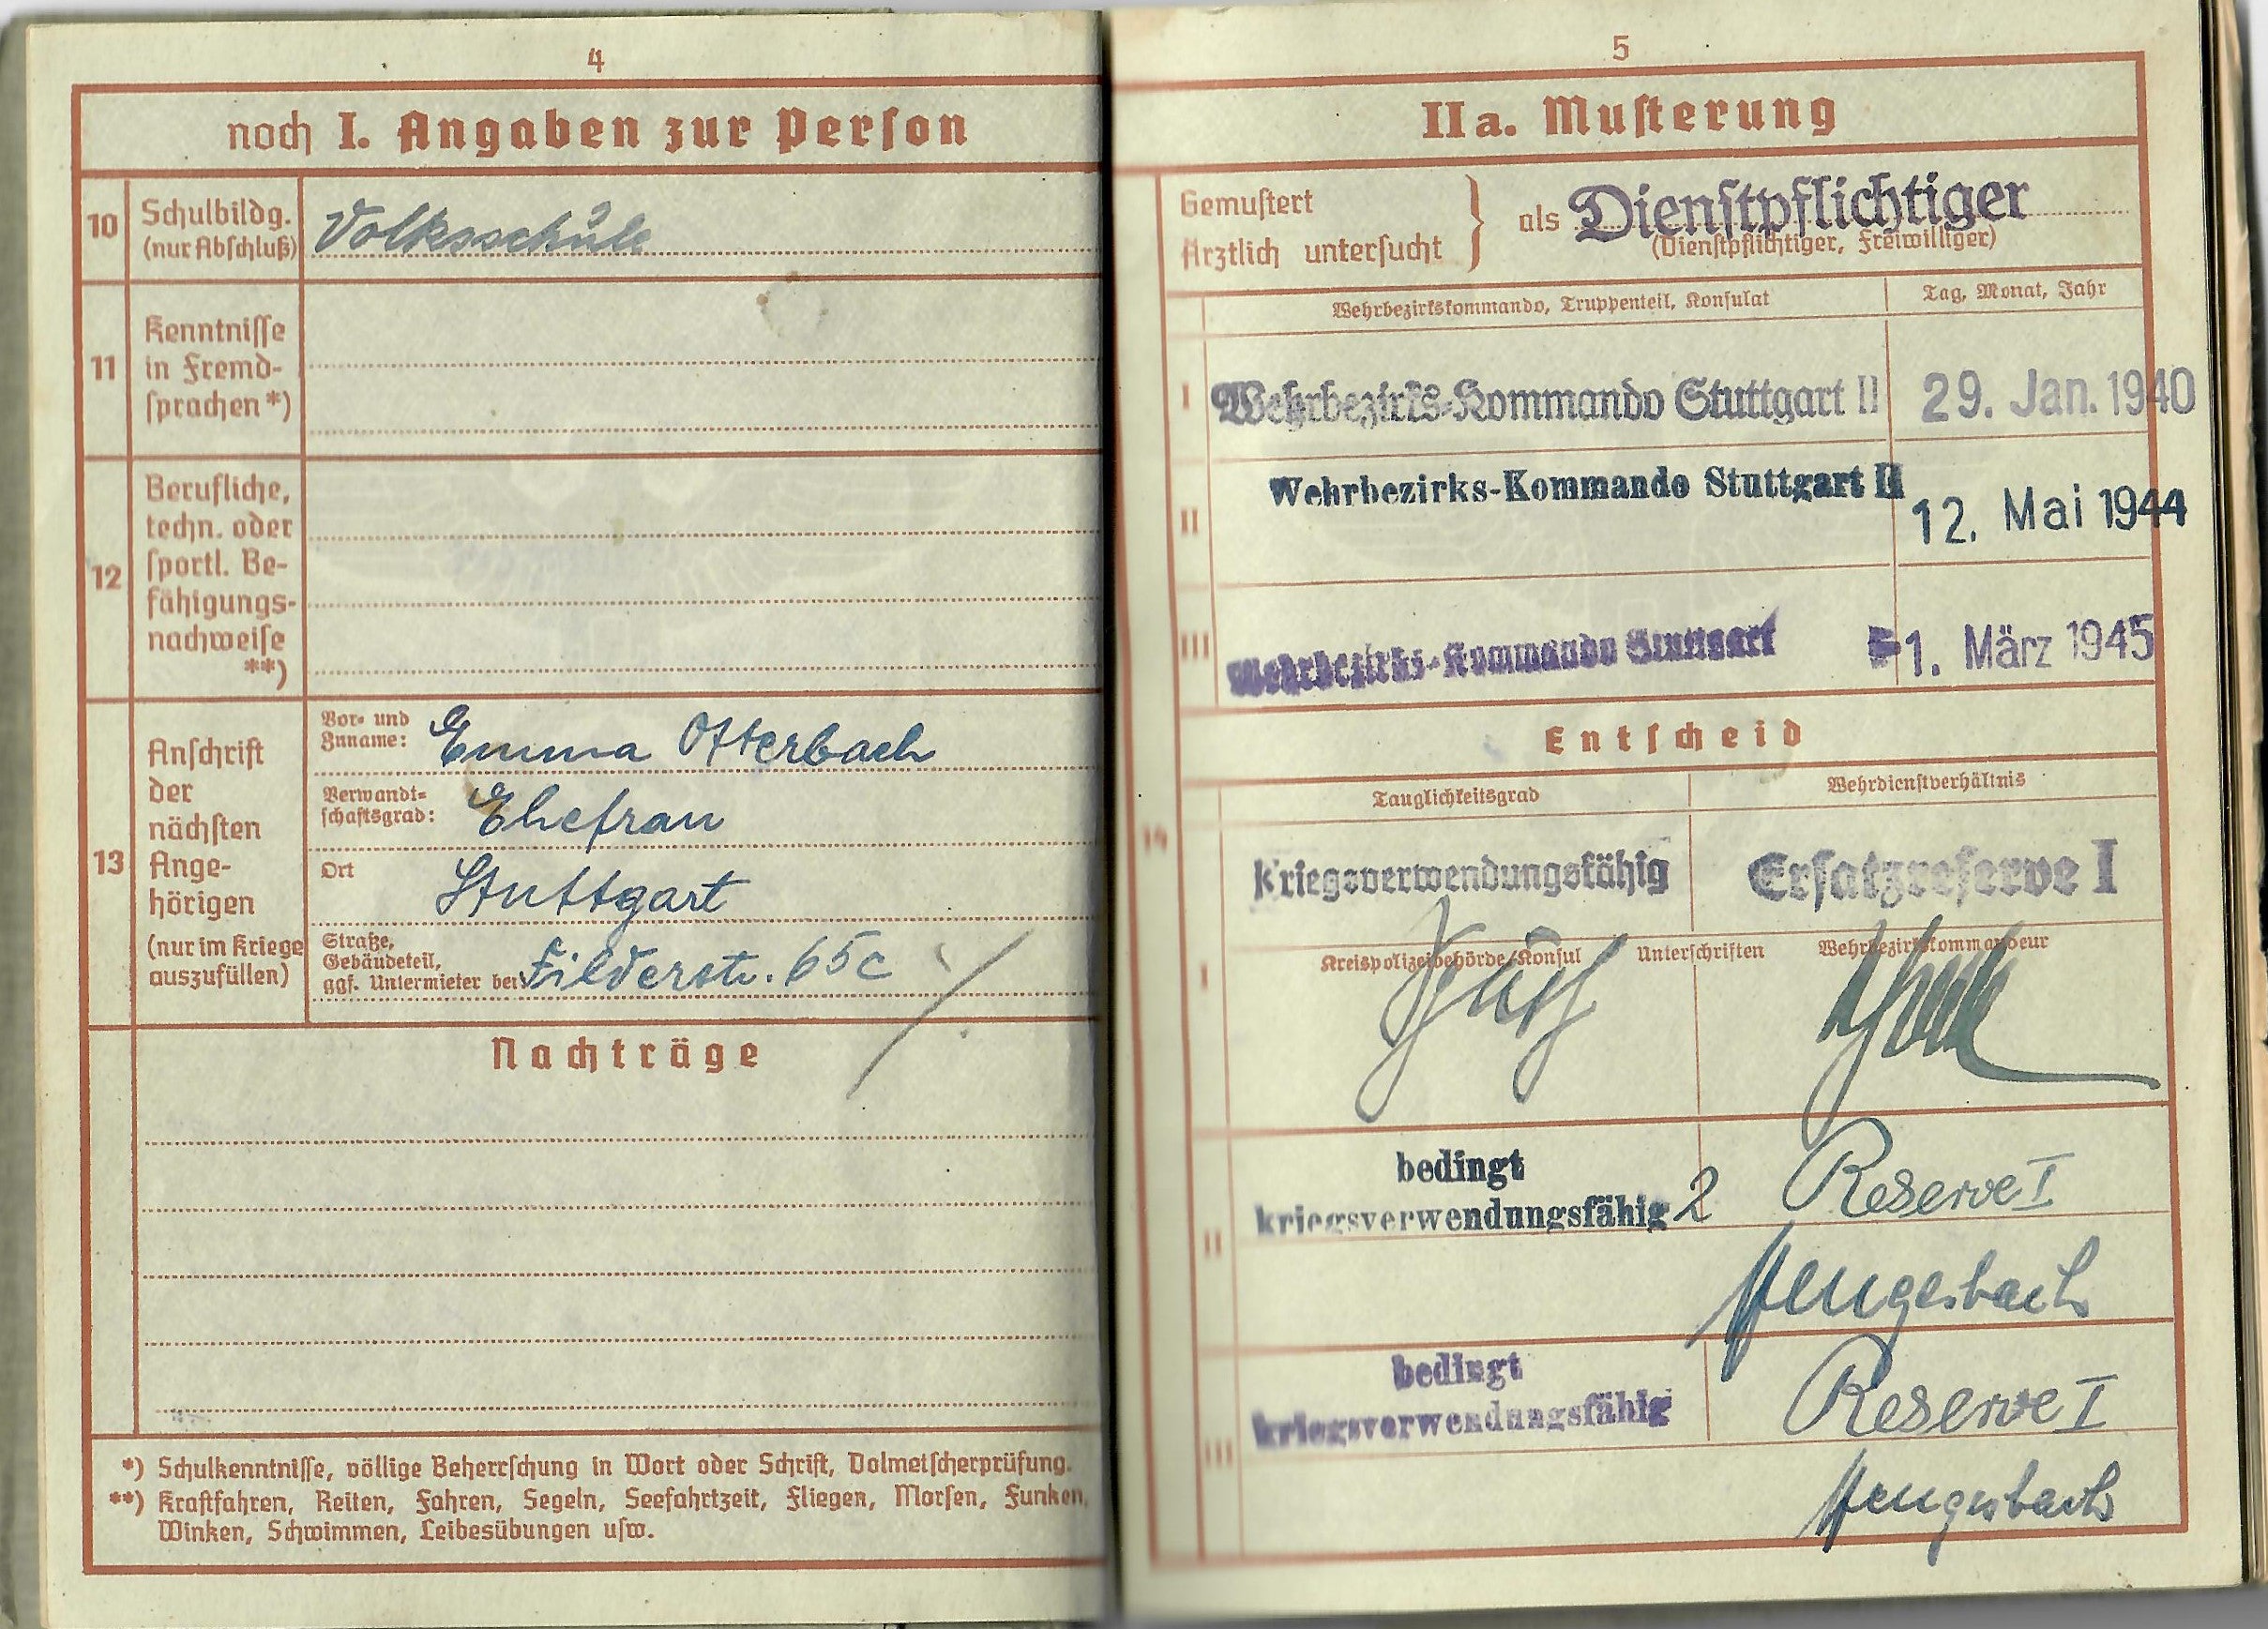 4
noch I. Angaben zur Person
10 Schulbildg. (nur Abschluß) Volksschule
11 Kenntnisse in Fremd-
sprachen *)
12 Berufliche,
techn. oder
sportl. Be-
fähigungs-
nachweise
**)
13 Anschrift
der
nächsten
Ange-
hörigen
(nur im Kriege
auszufüllen)
Vor- und
Zuname: Emma Otterbach
Verwandt-
schaftsgrad: Ehefrau
Ort Stuttgart
Straße,
Gebäudeteil,
ggf. Untermieter bei Filderstr. 65c
Nachträge
*) Schulkenntnisse, völlige Beherrschung in Wort oder Schrift, Dolmetscherprüfung.
**) Kraftfahren, Reiten, Fahren, Segeln, Seefahrtzeit, Fliegen, Morsen, Funken,
Winken, Schwimmen, Leibesübungen usw.
5
IIa. Musterung
Gemustert
Ärztlich untersucht } als Dienstpflichtiger
(Dienstpflichtiger, Freiwilliger)
Wehrbezirkskommando, Truppenteil, Konsulat Tag, Monat, Jahr
I Wehrbezirks-Kommando Stuttgart II 29. Jan. 1940
II Wehrbezirks-Kommando Stuttgart II 12. Mai 1944
III Wehrbezirks-Kommando Stuttgart 1. März 1945
Entscheid
14 Tauglichkeitsgrad Wehrdienstverhältnis
kriegsverwendungsfähig Ersatzreserve I
I Kreispolizeibehörde/Konsul Unterschriften Wehrbezirkskommandeur
bedingt
kriegsverwendungsfähig 2 Reserve I
II Hengesbach
bedingt
kriegsverwendungsfähig Reserve I
III Hengesbach